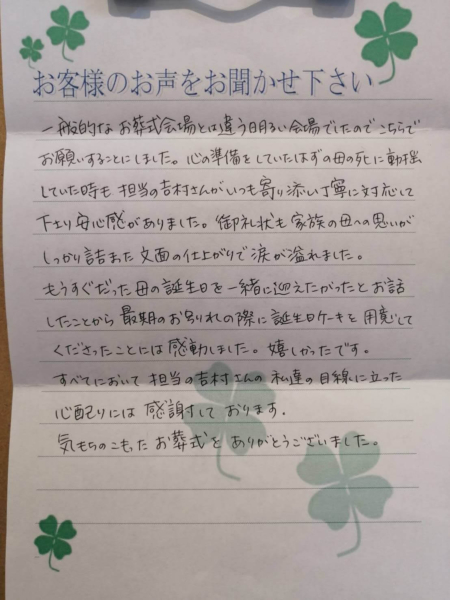 お客様のお声をお聞かせ下さい
一般的なお葬式会場とは違う明るい会場でしたのでこちらで
お願いすることにしました。心の準備をしていたはずの母の死に動揺
していた時も担当の吉村さんがいつも寄り添い丁寧に対応して
下さり安心感がありました。御礼状も家族の母への思いが
しっかり詰まった文面の仕上がりで涙が溢れました。
もうすぐだった母の誕生日を一緒に迎えたかったとお話
したことから最期のお別れの際に誕生日ケーキを用意して
くださったことには感動しました。嬉しかったです。
すべてにおいて担当の吉村さんの私達の目線に立った
心配りには感謝しております.
気もちのこもったお葬式をありがとうございました。